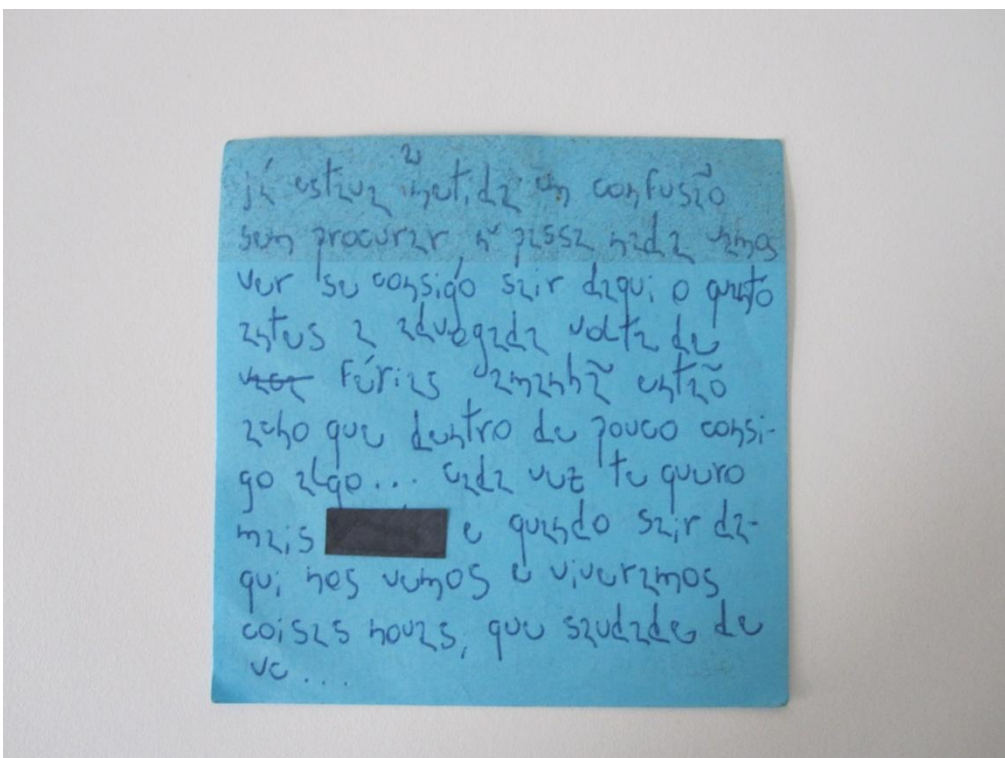 já estava metida em confusão
sem procurar, ñ passa nada vamos
ver se consigo sair daqui o quanto
antes a advogada volta de
férias amanhã então
acho que dentro de pouco consi-
go algo... cada vez te quero
mais e quando sair da-
qui nos vemos e viveramos
coisas novas, que saudade de
vc ...